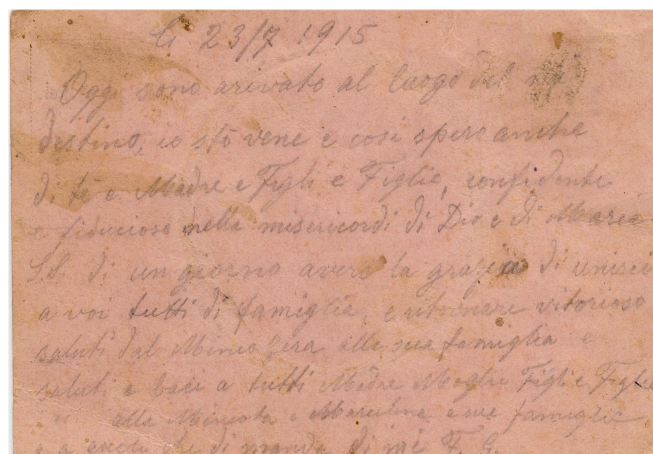 li 23/7 1915
Oggi sono arivato al luogo del
destino, io stò vene e così spero anche
di te e Madre e Figli e Figlie, confidente
e fiducioso nella misericordi di Dio e di Maria
S.S. di un giorno avere la grazia di unisci
a voi tutti di famiglia, e ritornare vitorioso
saluti dal alla sua famiglia e
saluti e baci a tutti Madre Moglie Figli e Figlie
" alla e sue famiglie
e a che di manda di me F. G.